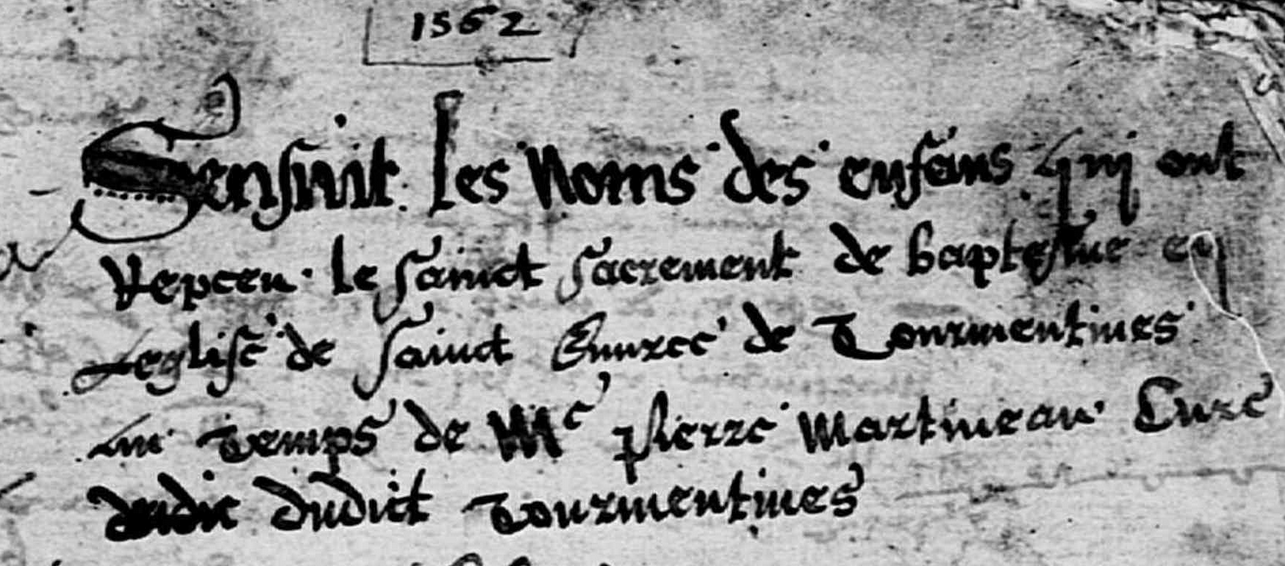 1562
Sensuit les noms des enfans qui ont
Repceu le sainct sacrement de baptesme en
Leglise de sainct de Tourmentines
au temps de Me pierre martineau Cure
dudict tourmentines